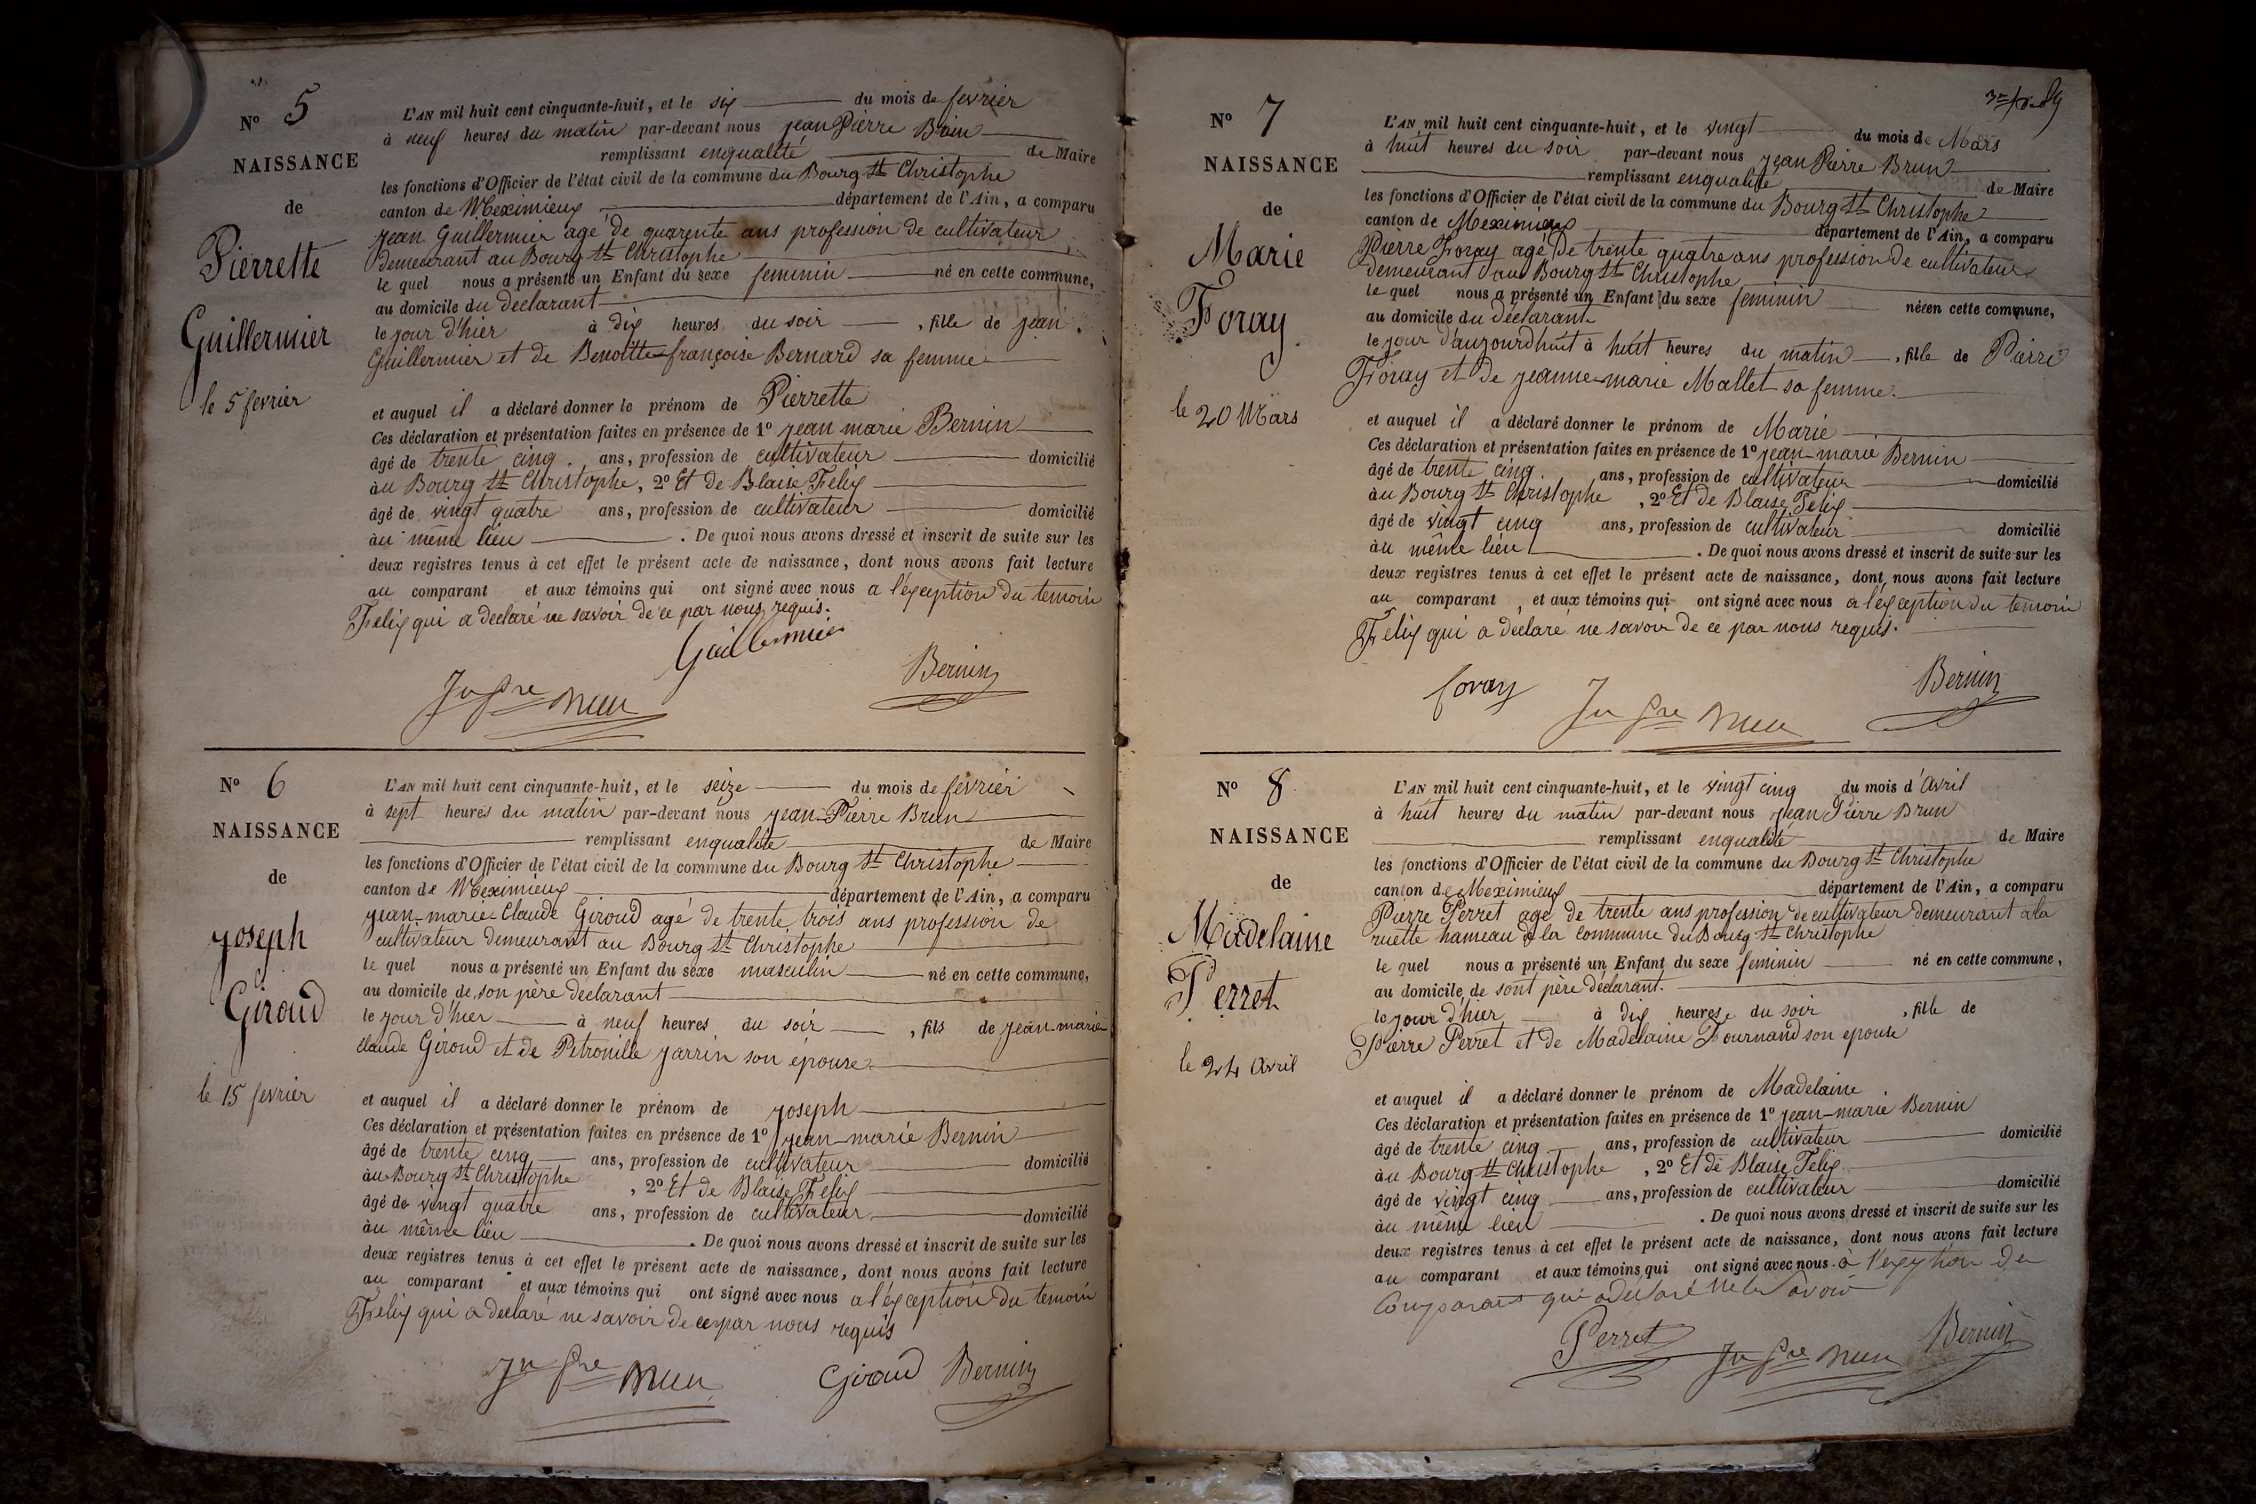 N° 5
NAISSANCE
de
Pierrette
Guillermier
le 5 fevrier
L'AN mil huit cent cinquante-huit, et le six du mois de fevrier
à neuf heures du matin par-devant nous jean Pierre Brun
remplissant enqualité de Maire
les fonctions d'Officier de l'état civil de la commune du Bourg St Christophe
canton de Meximieux département de l'Ain, a comparu
jean Guillermier agé de quarente ans profession de cultivateur
demeurant au Bourg St Christophe
le quel nous a présenté un Enfant du sexe feminin né en cette commune,
au domicile du declarant
le jour d'hier à dix heures du soir , fille de jean
Guillermier et de Benoitte françoise Bernard sa femme
et auquel il a déclaré donner le prénom de Pierrette
Ces déclaration et présentation faites en présence de 1° jean marie Bernin
âgé de trente cinq ans, profession de cultivateur domicilié
au Bourg St Christophe, 2° Et de Blaise Felix
âgé de vingt quatre ans, profession de cultivateur domicilié
au même lieu . De quoi nous avons dressé et inscrit de suite sur les
deux registres tenus à cet effet le présent acte de naissance, dont nous avons fait lecture
au comparant et aux témoins qui ont signé avec nous a l'exception du temoin
Felix qui a declaré ne savoir de ce par nous requis.
Guillermier
Jn Pre Brun
Bernin
N° 6
NAISSANCE
de
joseph
Giroud
le 15 fevrier
L'AN mil huit cent cinquante-huit, et le seize du mois de fevrier
à sept heures du matin par-devant nous jean-Pierre Brun
remplissant enqualité de Maire
les fonctions d'Officier de l'état civil de la commune du Bourg St Christophe
canton de Meximieux département de l'Ain, a comparu
jean-marie Claude Giroud agé de trente trois ans profession de
cultivateur demeurant au Bourg St Christophe
le quel nous a présenté un Enfant du sexe masculin né en cette commune,
au domicile de son père declarant
le jour d'hier à neuf heures du soir , fils de jean-marie
claude Giroud et de Petronille jarrin son épouse
et auquel il a déclaré donner le prénom de joseph
Ces déclaration et présentation faites en présence de 1° jean-marie Bernin
âgé de trente cinq ans, profession de cultivateur domicilié
au Bourg St Christophe , 2° Et de Blaise Felix
âgé de vingt quatre ans, profession de cultivateur domicilié
au même lieu . De quoi nous avons dressé et inscrit de suite sur les
deux registres tenus à cet effet le présent acte de naissance, dont nous avons fait lecture
au comparant et aux témoins qui ont signé avec nous a l'exception du temoin
Felix qui a declaré ne savoir de ce par nous requis
Jn Pre Brun
Giroud
Bernin
N° 7
NAISSANCE
de
Marie
Foray
le 20 Mars
L'AN mil huit cent cinquante-huit, et le vingt du mois de Mars
à huit heures du soir par-devant nous jean Pierre Brun
remplissant enqualité de Maire
les fonctions d'Officier de l'état civil de la commune du Bourg St Christophe
canton de Meximieux département de l'Ain, a comparu
Pierre Foray agé de trente quatre ans profession de cultivateur
demeurant au Bourg St Christophe
le quel nous a présenté un Enfant du sexe feminin née en cette commune,
au domicile du déclarant
le jour d'aujourdhuit à huit heures du matin , fille de Pierre
Foray et de jeanne-marie Mallet sa femme.
et auquel il a déclaré donner le prénom de Marie
Ces déclaration et présentation faites en présence de 1° jean-marie Bernin
âgé de trente cinq ans, profession de cultivateur domicilié
au Bourg St Christophe , 2° Et de Blaise Felix
âgé de vingt cinq ans, profession de cultivateur domicilié
au même lieu . De quoi nous avons dressé et inscrit de suite sur les
deux registres tenus à cet effet le présent acte de naissance, dont nous avons fait lecture
au comparant , et aux témoins qui ont signé avec nous a l'exception du temoin
Felix qui a declaré ne savoir de ce par nous requis.
foray
Jn Pre Brun
Bernin
N° 8
NAISSANCE
de
Madelaine
Perret
le 24 avril
L'AN mil huit cent cinquante-huit, et le vingt cinq du mois d'avril
à huit heures du matin par-devant nous jean Pierre Brun
remplissant enqualité de Maire
les fonctions d'Officier de l'état civil de la commune du Bourg St Christophe
canton de Meximieux département de l'Ain, a comparu
Pierre Perret agé de trente ans profession de cultivateur demeurant a la
ruette hameau de la commune du Bourg St Christophe
le quel nous a présenté un Enfant du sexe feminin né en cette commune,
au domicile de sont père déclarant.
le jour d'hier à dix heures du soir , fille de
Pierre Perret et de Madelaine Fournand son epouse
et auquel il a déclaré donner le prénom de Madelaine
Ces déclaration et présentation faites en présence de 1° jean-marie Bernin
âgé de trente cinq ans, profession de cultivateur domicilié
au Bourg St Christophe , 2° Et de Blaise Felix
âgé de vingt cinq ans, profession de cultivateur domicilié
au même lieu . De quoi nous avons dressé et inscrit de suite sur les
deux registres tenus à cet effet le présent acte de naissance, dont nous avons fait lecture
au comparant et aux témoins qui ont signé avec nous à l'exeption du
Comparant qui a declaré ne le savoir
Perret
Jn Pre Brun
Bernin